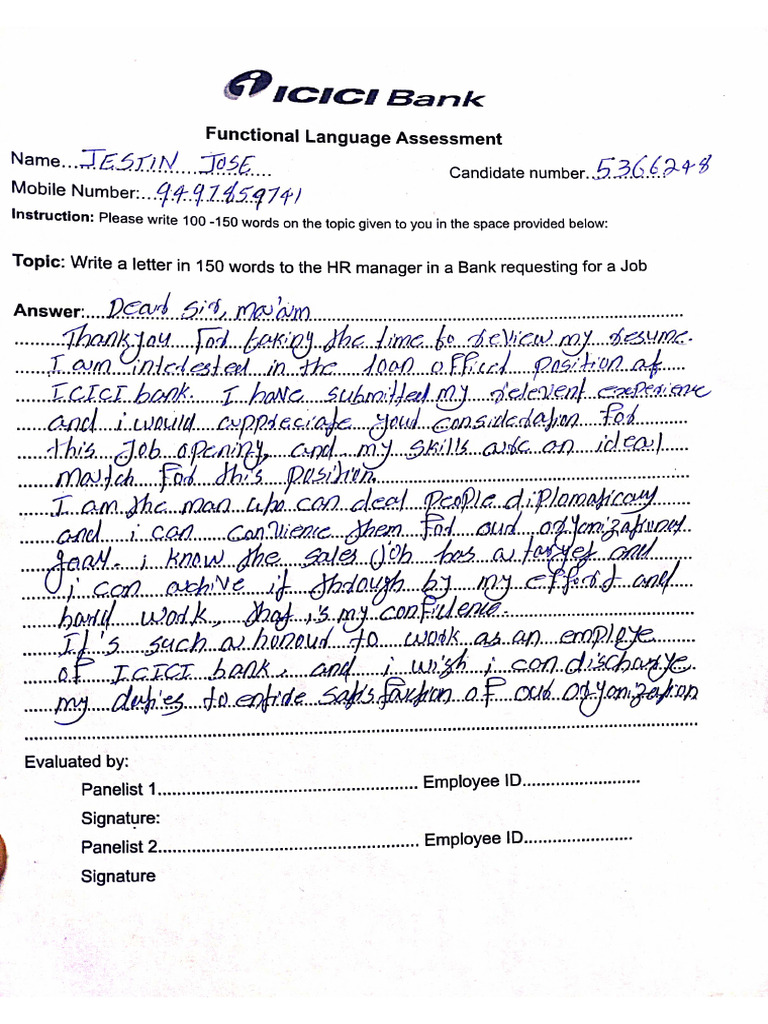 ICICI Bank
Functional Language Assessment
Name....JESTIN JOSE
Candidate number..5366248
Mobile Number:..9497859741
Instruction: Please write 100 -150 words on the topic given to you in the space provided below:
Topic: Write a letter in 150 words to the HR manager in a Bank requesting for a Job
Answer: Dear Sir, Ma'am
Thank you for taking the time to review my resume.
I am interested in the loan officer position of
ICICI bank. I have submitted my relevent experience
and i would appreciate your consideration for
this job opening, and my skills are an ideal
match for this position.
I am the man who can deal people diplomaticaly
and i can convience them for our organizational
goal. i know the sales job has a target and
i can achive it through by my effort and
hard work, that is my confidence.
It's such a honour to work as an employe
of ICICI bank. and i wish i can discharge
my duties to entire satisfaction of our organization
Evaluated by:
Panelist 1.......... Employee ID..........
Signature:
Panelist 2.......... Employee ID..........
Signature